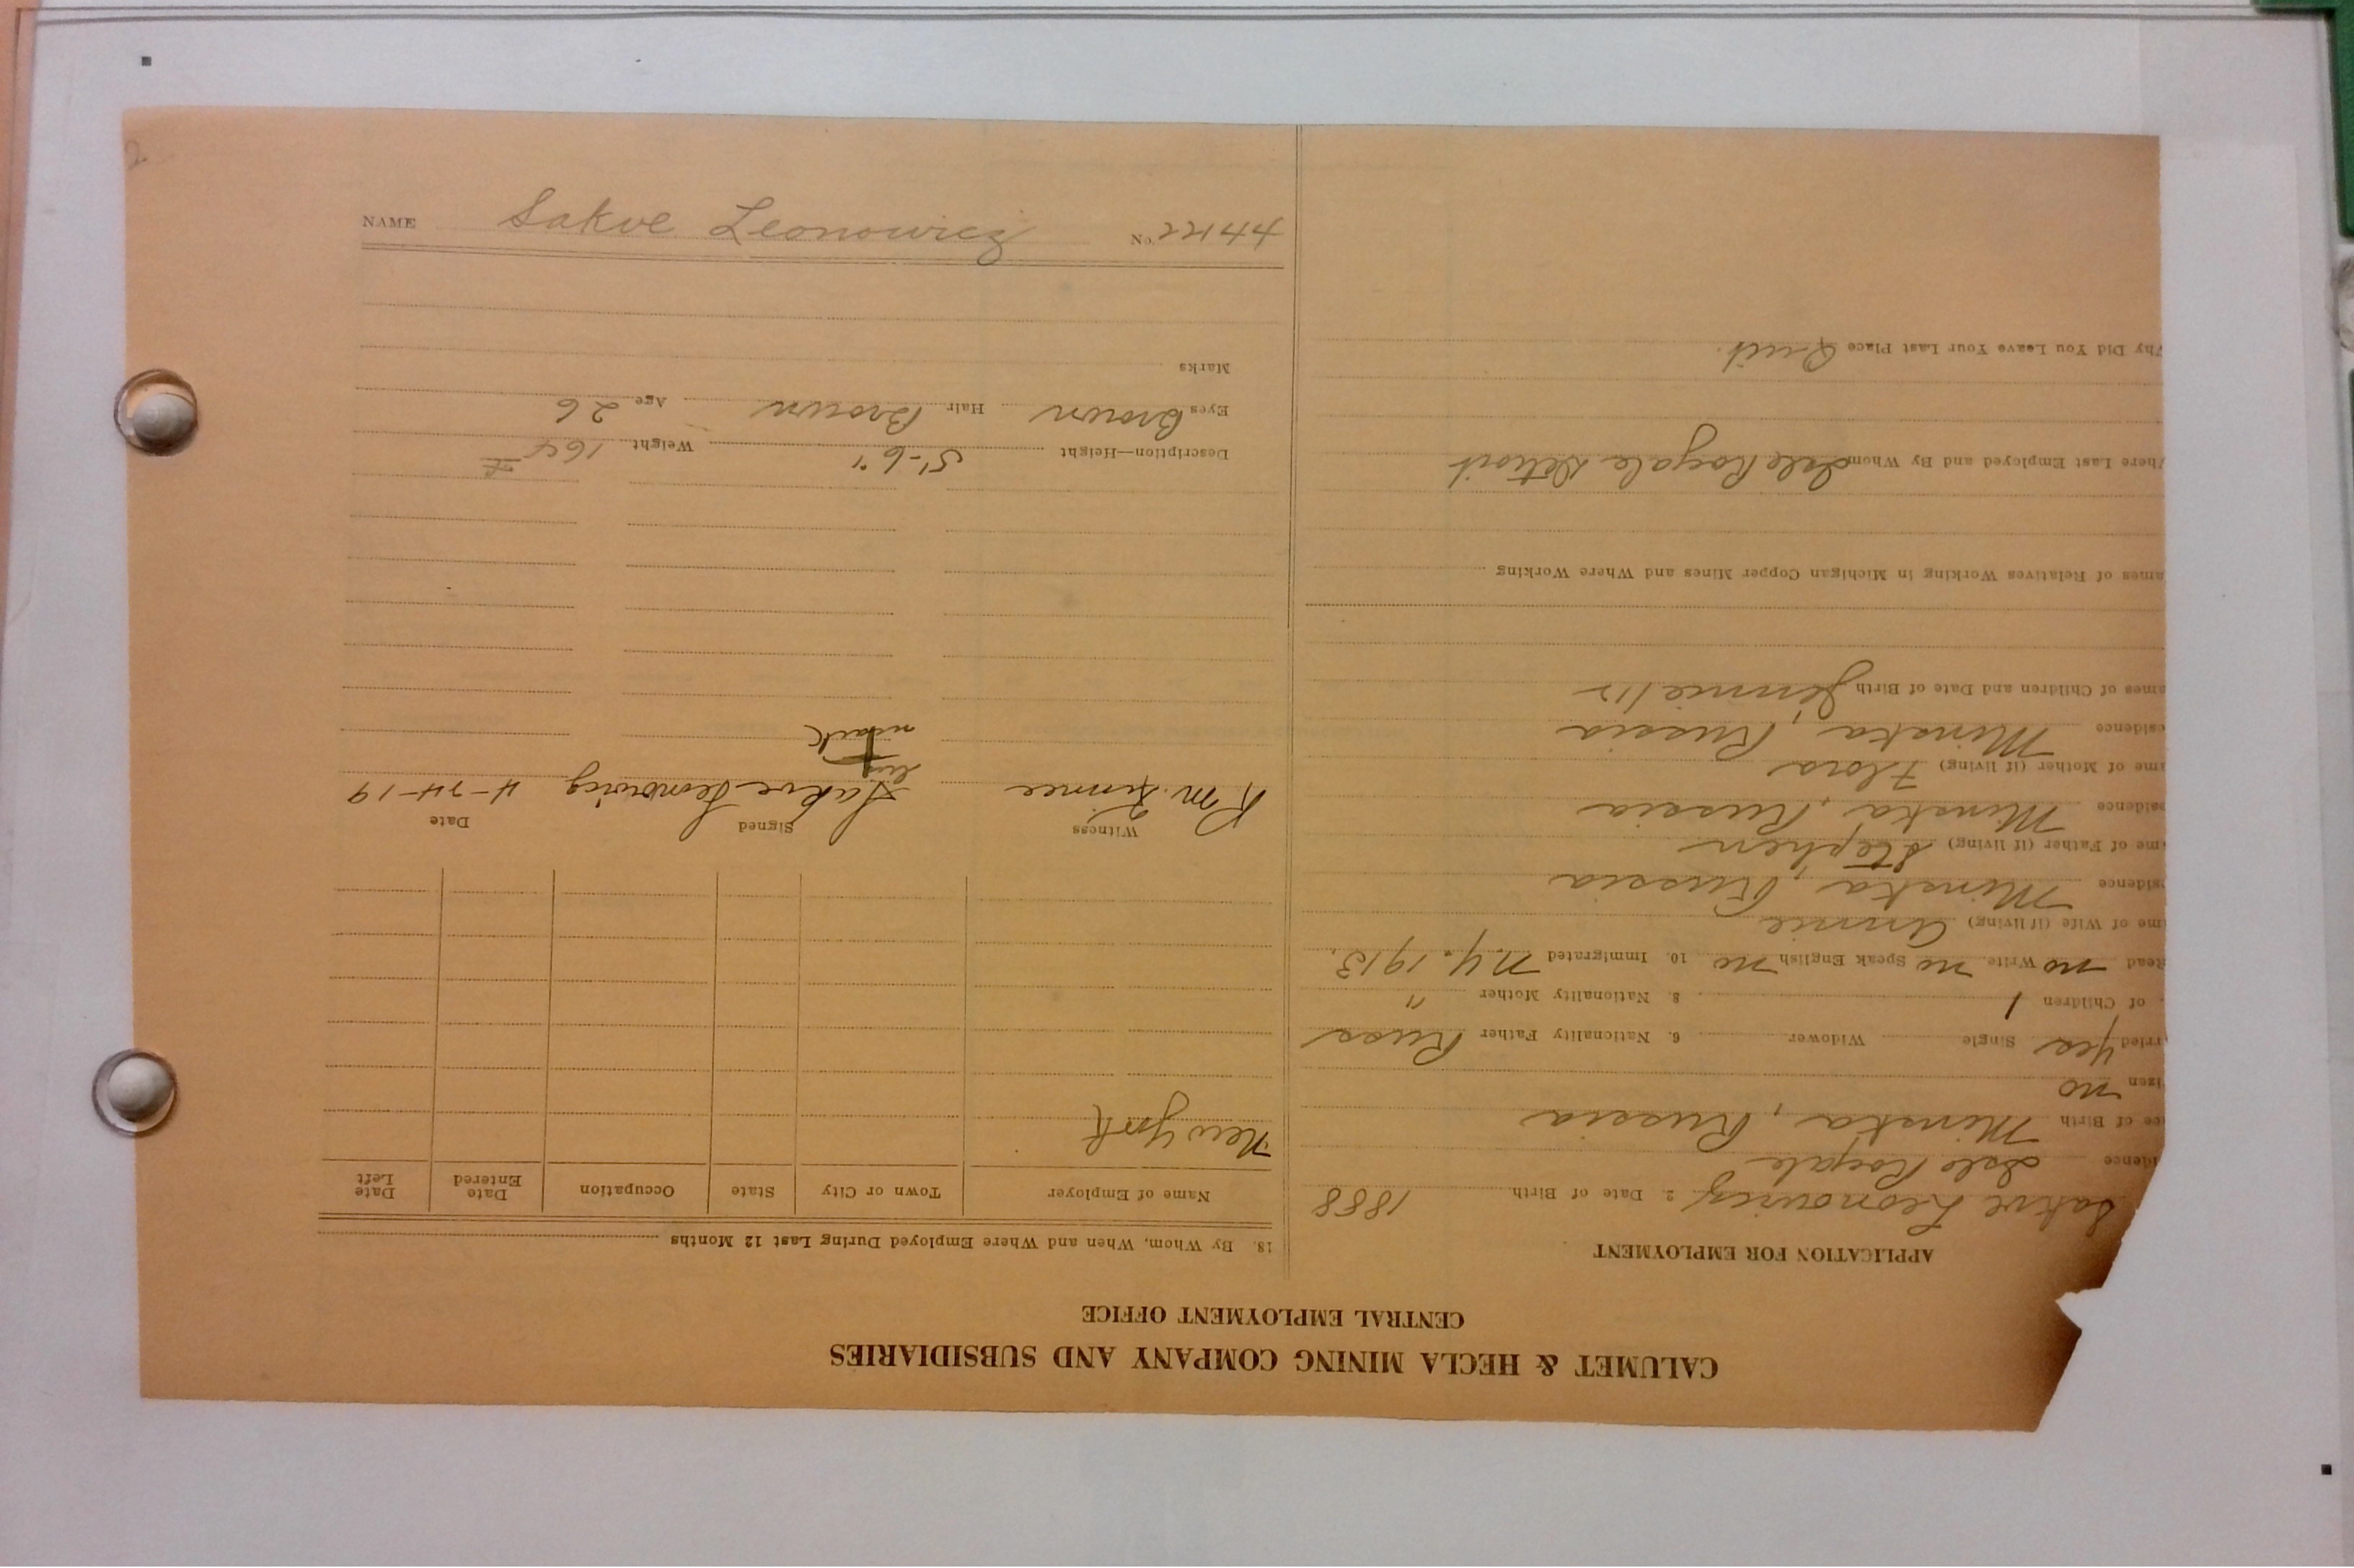 CALUMET & HECLA MINING COMPANY AND SUBSIDIARIES
CENTRAL EMPLOYMENT OFFICE
APPLICATION FOR EMPLOYMENT
Sakve Leonowicz 2. Date of Birth 1888
idence Isle Royale
ce of Birth Minska, Russia
izen no
rried Yes Single Widower 6. Nationality Father Russ
. of Children 1 8. Nationality Mother "
Read no Write no Speak English no 10. Immigrated N.Y. 1913.
me of Wife (if living) Annie
sidence Minska, Russia
me of Father (if living) Stephen
esidence Minska, Russia
me of Mother (if living) Flora
sidence Minska, Russia
ames of Children and Date of Birth Jennie
ames of Relatives Working in Michigan Copper Mines and Where Working
here Last Employed and By Whom Isle Royale Detroit
hy Did You Leave Your Last Place Quit.
18. By Whom, When and Where Employed During Last 12 Months
Name of Employer Town or City State Occupation Date Entered Date Left
New York
Witness Signed Date
Sakve Leonowicz 4-24-19
his
mark
Description—Height 5'-6" Weight 164
Eyes Brown Hair Brown Age 26
Marks
NAME Sakve Leonowicz No. 22144